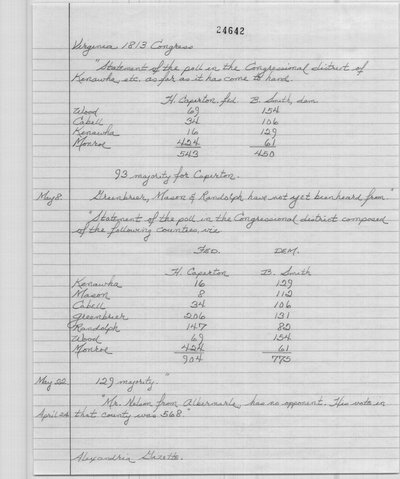 24642
Virginia 1813 Congress
"Statement of the poll in the Congressional district of
Kenawha etc. as far as it has come to hand.
H. Caperton, fed. B. Smith, dem
Wood 69 154
Cabell 34 106
Kenawha 16 129
Monroe 424 61
543 450
93 majority for Caperton.
May 8. Greenbrier, Mason & Randolph have not yet been heard from."
"Statement of the poll in the Congressional district composed
of the following counties, viz
FED. DEM.
H. Caperton B. Smith
Kenawha 16 129
Mason 8 112
Cabell 34 106
Greenbrier 206 131
Randolph 147 82
Wood 69 154
Monroe 424 61
904 775
May 22 129 majority."
"Mr. Nelson from Albermarle has no opponent. His vote in
April 24 that county was 568."
Alexandria Gazette.